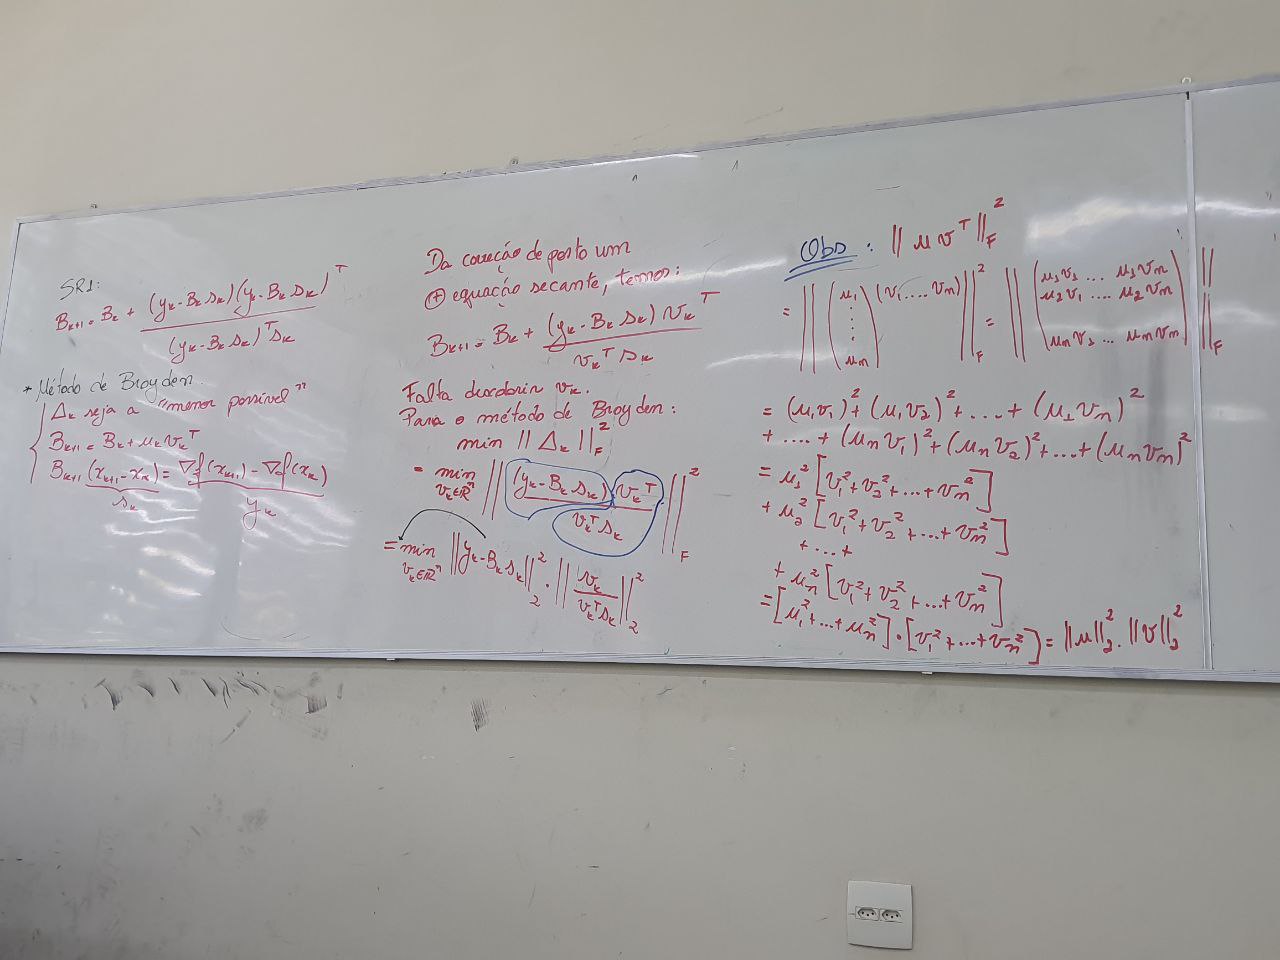 SR1:
B_{k+1} = B_k + \frac{(y_k - B_k s_k)(y_k - B_k s_k)^T}{(y_k - B_k s_k)^T s_k}
* Método de Broyden.
Δ_k seja a "menor possível"
B_{k+1} = B_k + u_k v_k^T
B_{k+1} \underbrace{(x_{k+1} - x_k)}_{s_k} = \underbrace{∇f(x_{k+1}) - ∇f(x_k)}_{y_k}
Da correção de posto um
⊕ equação secante, temos:
B_{k+1} = B_k + \frac{(y_k - B_k s_k) v_k^T}{v_k^T s_k}
Falta descobrir v_k.
Para o método de Broyden:
min ||Δ_k||_F^2
= min_{v_k ∈ R^n} || \frac{(y_k - B_k s_k) v_k^T}{v_k^T s_k} ||_F^2
= min_{v_k ∈ R^n} ||y_k - B_k s_k||_2^2 . || \frac{v_k}{v_k^T s_k} ||_2^2
Obs: ||u v^T||_F^2
= || (u_1 ⋮ u_n) (v_1 .... v_n) ||_F^2 = || (u_1v_1 ... u_1v_n
u_2v_1 .... u_2v_n
u_nv_1 ... u_nv_n) ||_F
= (u_1v_1)^2 + (u_1v_2)^2 + .... + (u_1v_n)^2
+ .... + (u_nv_1)^2 + (u_nv_2)^2 + ... + (u_nv_n)^2
= u_1^2 [v_1^2 + v_2^2 + ... + v_n^2]
+ u_2^2 [v_1^2 + v_2^2 + ... + v_n^2]
+ ... +
+ u_n^2 [v_1^2 + v_2^2 + ... + v_n^2]
= [u_1^2 + ... + u_n^2] . [v_1^2 + ... + v_n^2] = ||u||_2^2 . ||v||_2^2